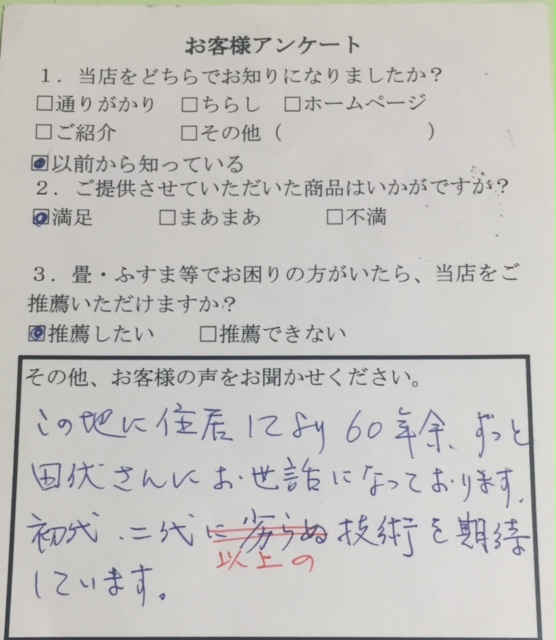 お客様アンケート
1．当店をどちらでお知りになりましたか？
□通りがかり □ちらし □ホームページ
□ご紹介 □その他（ ）
☑以前から知っている
2．ご提供させていただいた商品はいかがですか？
☑満足 □まあまあ □不満
3．畳・ふすま等でお困りの方がいたら、当店をご
推薦いただけますか？
☑推薦したい □推薦できない
その他、お客様の声をお聞かせください。
この地に住居してより60年余、ずっと
田伏さんにお世話になっております。
初代、二代に劣らぬ技術を期待
以上の
しています。